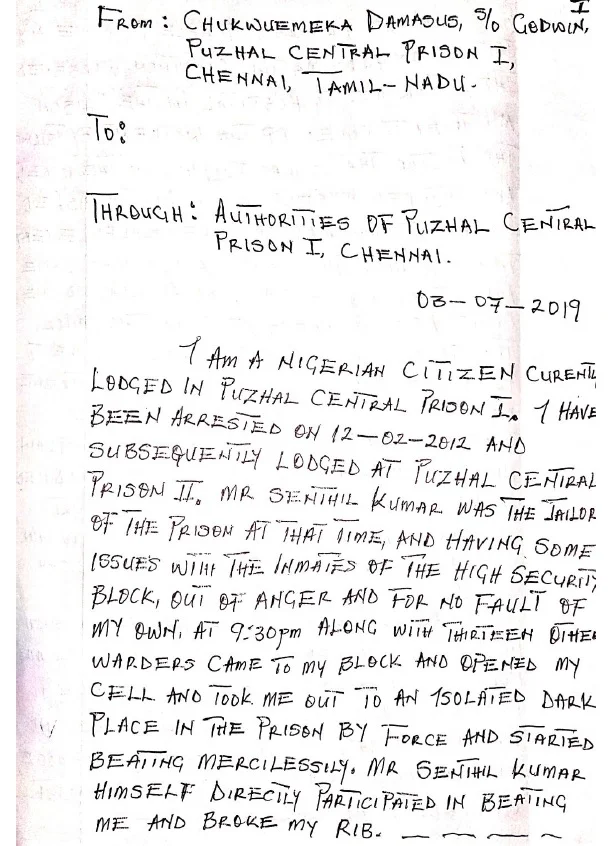 I
From: Chukwuemeka Damasus, S/o Godwin,
Puzhal Central Prison I,
Chennai, Tamil-Nadu.
To:
Through: Authorities of Puzhal Central
Prison I, Chennai.
03-07-2019
I am a Nigerian citizen curently
lodged in Puzhal Central Prison I. I have
been arrested on 12-02-2012 and
subsequently lodged at Puzhal Central
Prison II. Mr Senthil Kumar was the Jailor
of the Prison at that time, and having some
issues with the inmates of the high security
block, out of anger and for no fault of
my own, at 9:30pm along with thirteen other
warders came to my block and opened my
cell and took me out to an isolated dark
place in the prison by force and started
beating mercilessily. Mr Senthil Kumar
himself directly participated in beating
me and broke my rib.